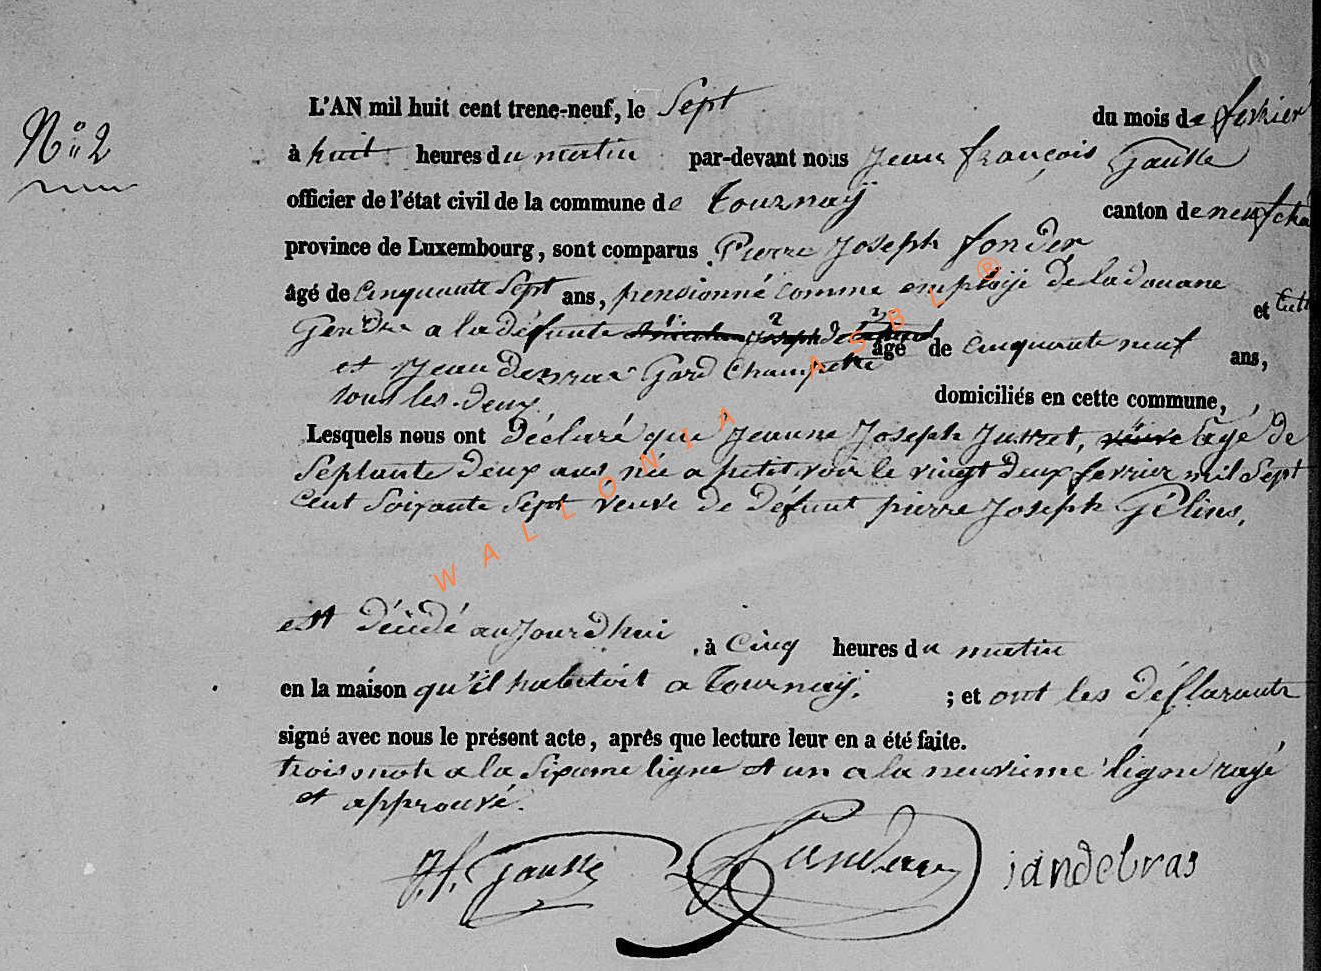 N° 2
L'AN mil huit cent trene-neuf, le Sept du mois de fevrier
à huit heures du matin par-devant nous Jean françois Gausse
officier de l'état civil de la commune de Tournaÿ canton de neufchâ
province de Luxembourg, sont comparus Pierre Joseph fonder
âgé de Cinquante Sept ans, pensionné comme emploijé de la douane et
Gendre a la défunte âgé de cinquante neuf ans,
et Jean Debras Gard Champette
tous les deux domiciliés en cette commune,
Lesquels nous ont déclaré que Jeanne Joseph veuve âgé de
Septante deux ans née a petit voir le vingt deux fevrier mil Sept
Cent Soixante Sept veuve de défunt pierre Joseph Gélins,
est décédé aujourdhui, à Cinq heures du matin
en la maison qu'il habitoit a Tournaÿ. ; et ont les déclarants
signé avec nous le présent acte, après que lecture leur en a été faite.
trois mots a la Sixieme ligne et un a la neuvieme ligne rayé
et approuvé.
J. f. Gausse jandebras
WALLONIA ASBL ®